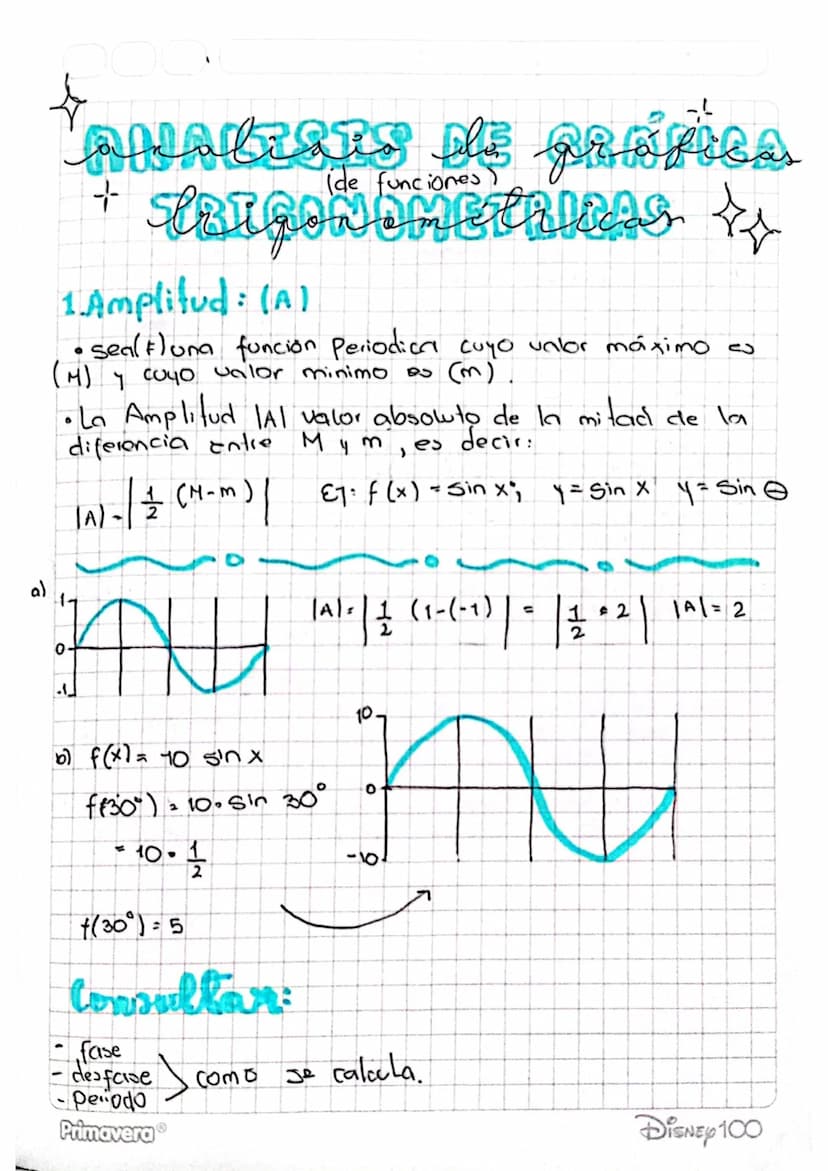 analisis de gráficas
(de funciones)
trigonométricas
1. Amplitud: (A)
• sea(t) una función Periodica cuyo valor máximo es
(M) y cuyo valor minimo es (m).
• La Amplitud |A| valor absoluto de la mitad de la
diferencia entre M y m, es decir:
|A| = | 1/2 (M-m) | Ej: f(x) = sin x; y = sin x y = sin θ
a)
1
0
-1
|A| = | 1/2 (1-(-1) | = | 1/2 • 2 | |A| = 2
b) f(x) = 10 sin x
f(30°) = 10 • sin 30°
= 10 • 1/2
f(30°) = 5
10
0
-10
Consultar:
- fase
- desfase
- periodo
como se calcula.
Primavera®
Disney100